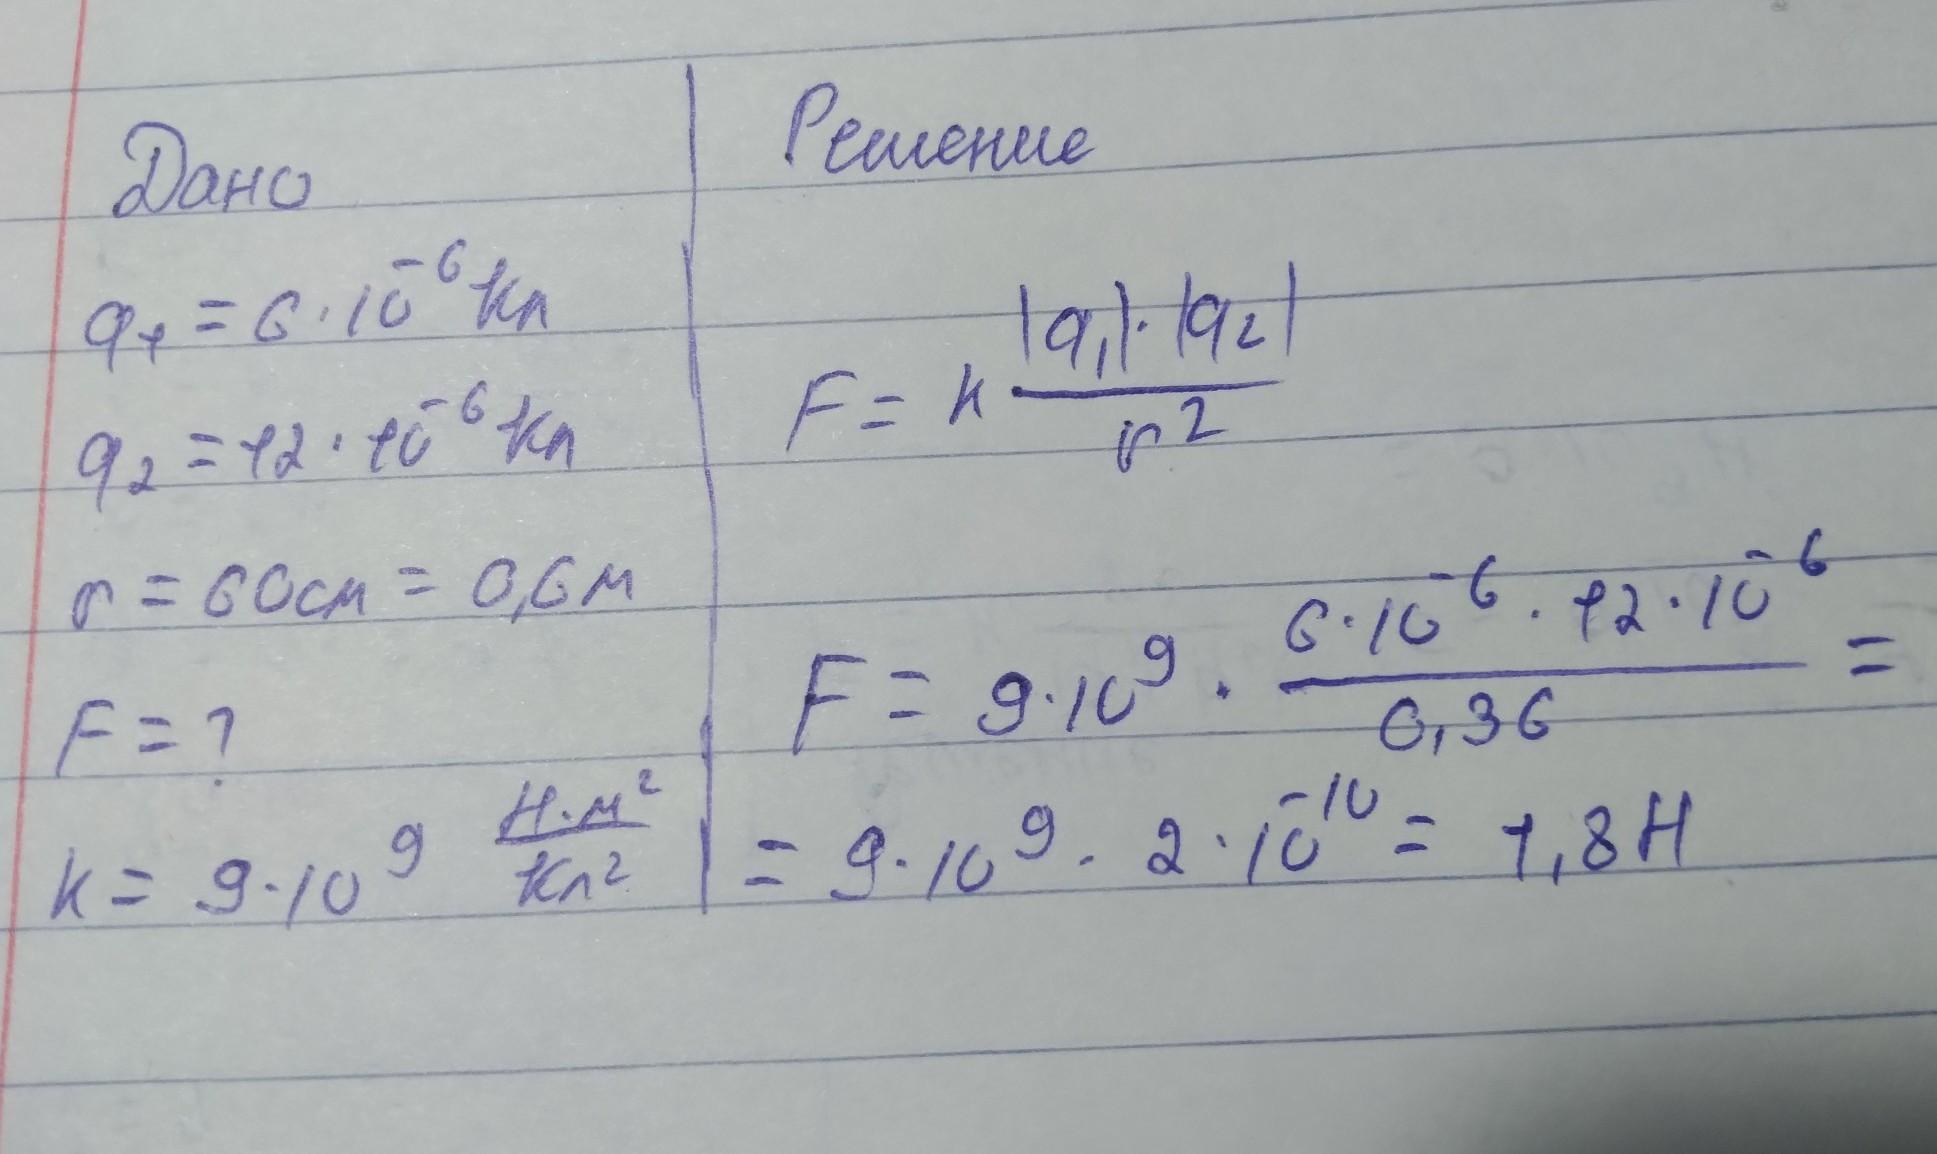 Дано
q₁ = 6·10⁻⁶ Кл
q₂ = 12·10⁻⁶ Кл
r = 60см = 0,6м
F = ?
k = 9·10⁹ Н·м²/Кл²
Решение
F = k |q₁|·|q₂| / r²
F = 9·10⁹ · 6·10⁻⁶ · 12·10⁻⁶ / 0,36 =
= 9·10⁹ · 2·10⁻¹⁰ = 1,8 Н